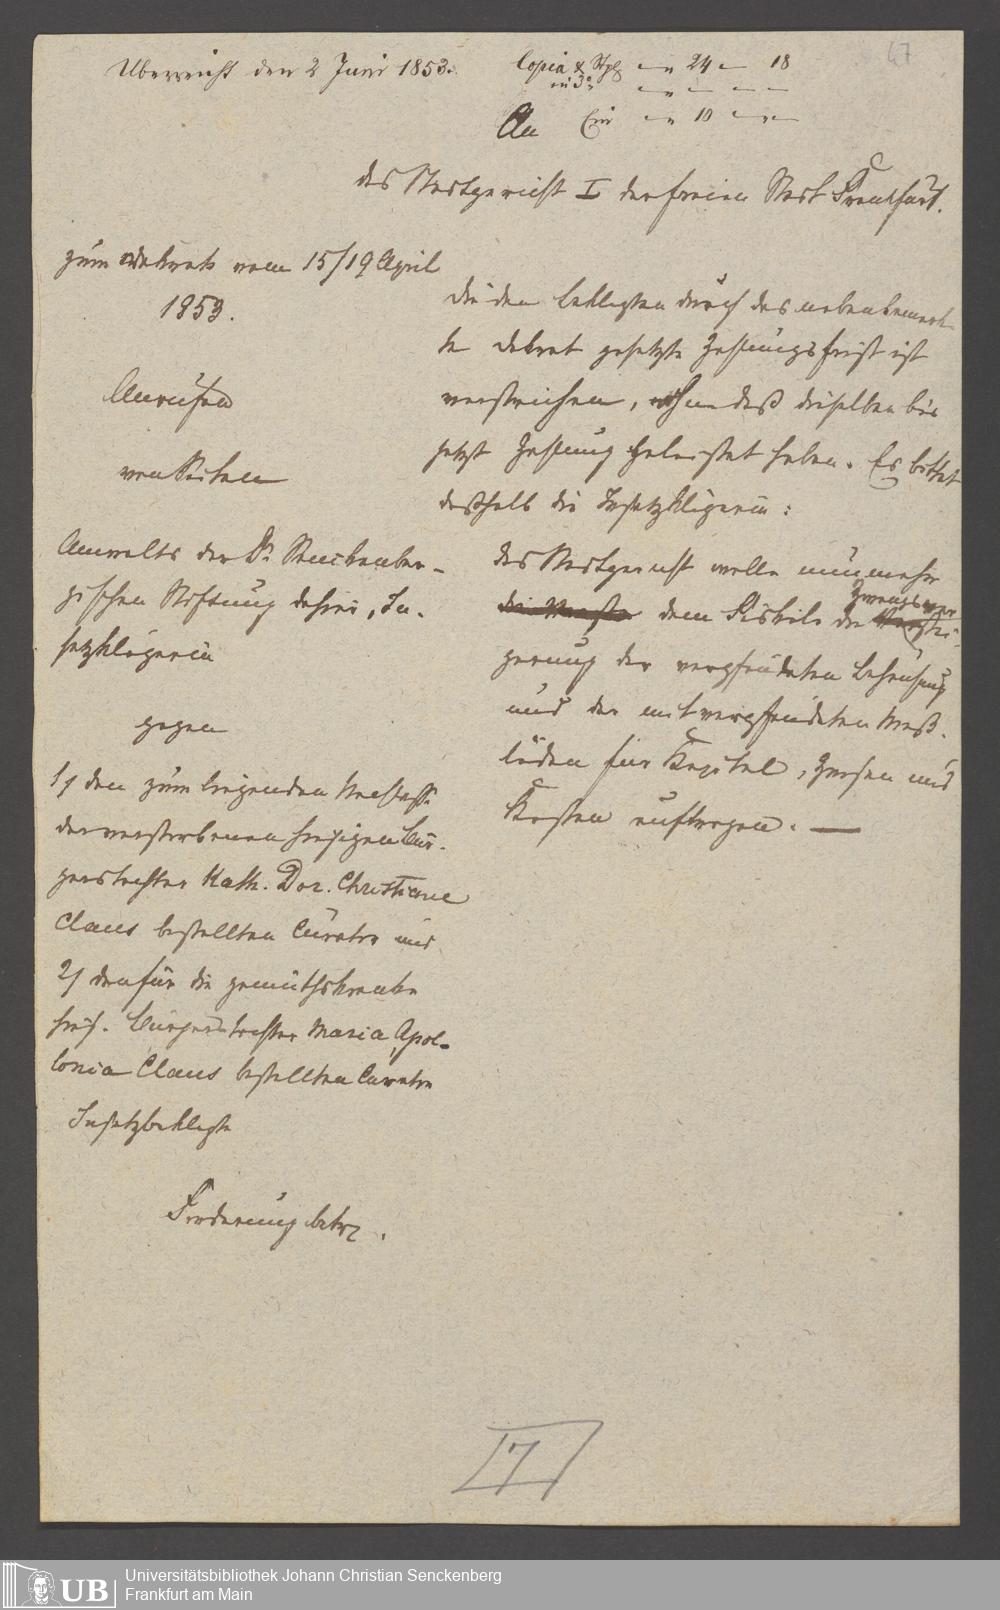 Überreicht den 2 Juni 1853.
Copia & Stpl — " 24 — 18
in 3°
— " — — —
An Ein — " 10 — " —
47
das Stadtgericht I der freien Stadt Frankfurt.
zum Dekrete vom 15/19 April
1853.
Anrufen
von Seiten
Anwalts der Dr. Senckenber-
gischen Stiftung dahier, In-
satzklägerin
gegen
1) den zum liegenden Nachlasse
der verstorbenen hiesigen Bür-
gerstochter Kath. Dor. Christiane
Claus bestellten Curator und
2) den für die gemüthskranke
hies. Bürgerstochter Maria Apol-
lonia Claus bestellten Curator
Insatzbeklagte
Forderung betr.
Die den Beklagten durch das nebenbemerk-
te Dekret gesetzte Zahlungsfrist ist
verstrichen, ohne daß dieselben bis
jetzt Zahlung geleistet haben. Es bittet
deßhalb die Insatzklägerin:
das Stadtgericht wolle nunmehr
dem Fiskale die Zwangsver
stei-
gerung der verpfändeten Behausung
und der mitverpfändeten Meß-
läden für Kapital, Zinsen und
Kosten auftragen. —
7
UB Universitätsbibliothek Johann Christian Senckenberg
Frankfurt am Main